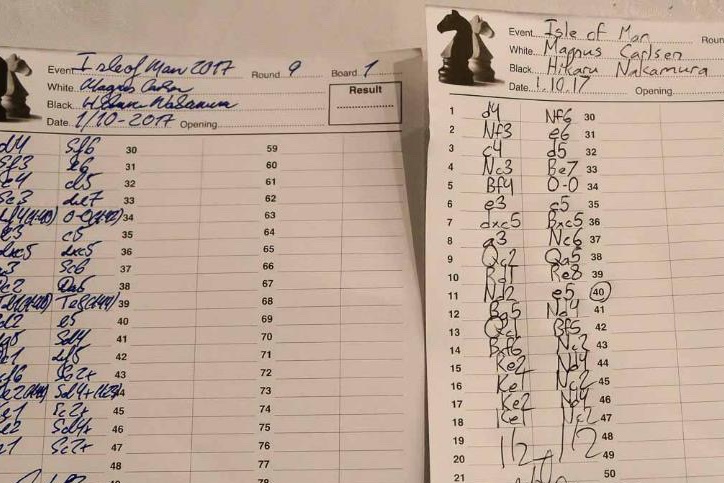 Event Isle of Man 2017 Round 9 Board 1
White Magnus
Black
Result
Date 1/10-2017 Opening
d4 Sf6 30 59
Sf3 e6 31 60
c4 d5 32 61
Sc3 33 62
34 63
e3 c5 35 64
dxc5 36 65
a3 Sc6 37 66
38 67
39 68
e5 40 69
Sd4 41 70
42 71
Sc2+ 43 72
73
Sc2+ 45 74
Sd4+ 46 75
Sc2+ 47 76
48 77
78
Event Isle of Man Roun
White Magnus Carlsen
Black Hikaru Nakamura
Date 1.10.17 Opening
1 d4 Nf6 30
2 Nf3 e6 31
3 c4 d5 32
4 Nc3 Be7 33
5 Bf4 0-0 34
6 e3 c5 35
7 dxc5 Bxc5 36
8 a3 Nc6 37
9 Qc2 Qa5 38
10 Rd1 Re8 39
11 Nd2 e5 40
12 Bg5 Nd4 41
13 Qc1 Bf5 42
14 Bxf6 Nc2 43
15 Ke2 Nd4 44
16 Ke1 Nc2 45
17 Ke2 Nd4 46
18 Ke1 Nc2 47
19 48
20 1/2 1/2 49
21 50